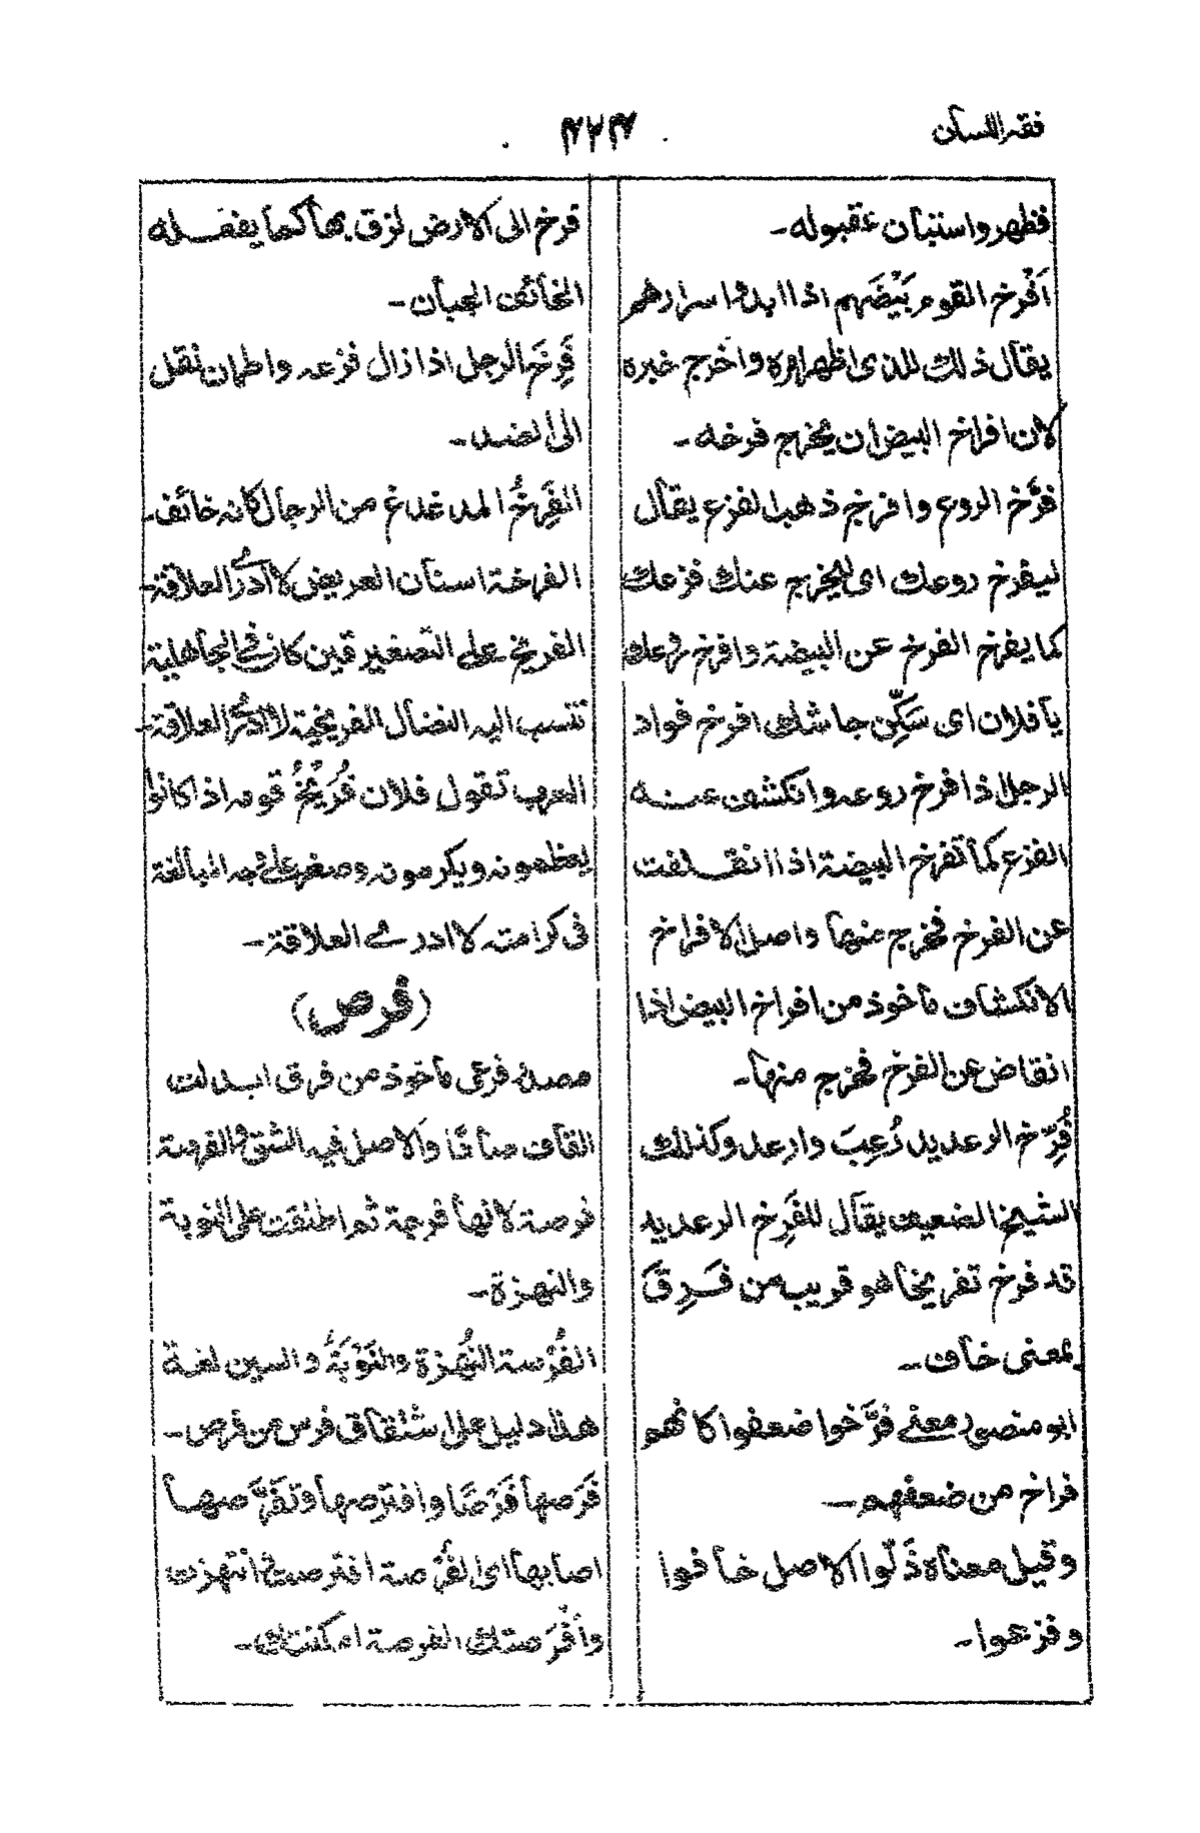 فقه اللسان
۴۲۳
فظهر واستبان عقبوله۔
اَفْرخ القوم بَيْضَهم اذا ابدوا اسرارهم
يقال ذلك للذى اظهر امره واخرج خبره
لان افراخ البيض ان يخرج فرخه۔
فرَّخ الروع وافرخ ذهب الفزع يقال
ليفرخ روعك اى ليخرج عنك فزعك
كما يفرخ الفرخ عن البيضة وافرخ روعك
يا فلان اى سَكِّن جاشك افرخ فواد
الرجل اذا فرخ روعه وانكشف عنه
الفزع كما تفرخ البيضة اذا انفلقت
عن الفرخ فخرج منها واصل الافراخ
الانكشاف ماخوذ من افراخ البيض اذا
انقاض عن الفرخ فخرج منها۔
فُرِّخ الرعديد رُعِبَ وارعد وكذلك
الشيخ الضعيف يقال للفَرِخ الرعديد
قد فرخ تفريخا هو قريب من فَرِقَ
بمعنى خاف۔
ابو منصور معنى فرَّخوا ضعفوا كانهم
فراخ من ضعفهم۔
وقيل معناه ذَلّوا الاصل خافوا
وفزعوا۔
فرخ الى الارض لزق بها كما يفعله
الخائف الجبان۔
فَرِخَ الرجل اذا زال فزعه واطمان نقل
الى الضد۔
الفَرِخُ المدغدغ من الرجال كانه خائف۔
الفرخة السنان العريض لا ادرى العلاقة۔
الفريخ على التصغير قين كان فى الجاهلية
تنسب اليه النصال الفريخية لا ادرى العلاقة۔
العرب تقول فلان فُرَيْخُ قومه اذا كانوا
يعظمونه ويكرمونه وصغر على وجه المبالغة
فى كرامته لا ادرى العلاقة۔
(فرص)
مصدر فرعى ماخوذ من فرق ابدلت
القاف صادًا والاصل فيه الشق والفرصة
فرصة لانها فرجة ثم اطلقت على النوبة
والنهزة۔
الفُرْصة النُهزة والنَوْبَةُ والسين لغة
هذا دليل على اشتقاق فرس من فرص۔
فَرَصها فَرَصًا وافترصها وتفَرَّصها
اصابها اى الفُرْصة افترصت انتهزت
وافْرَصتك الفرصة امكنتك۔